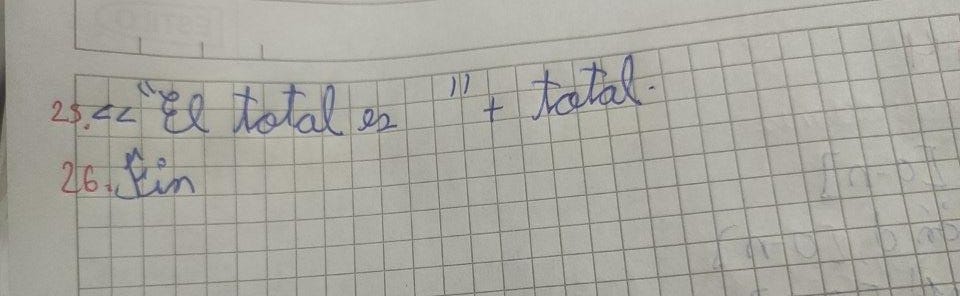 25. << "El total es " + total.
26. Fin